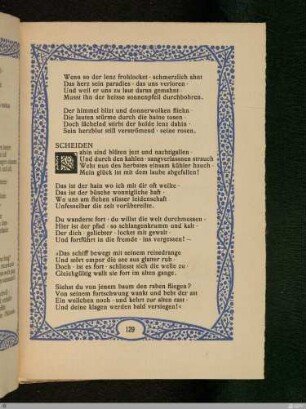 Wenn so der lenz frohlocket · schmerzlich ahnt
Das herz sein paradies · das uns verloren ·
Und weil er uns zu laut daran gemahnt
Muss ihn der heisse sonnenpfeil durchbohren.
Der himmel blizt und donnerwolken fliehn
Die lauten stürme durch die haine tosen ·
Doch lächelnd stirbt der holde lenz dahin ·
Sein herzblut still verströmend · seine rosen.
SCHEIDEN
ahin sind blüten jezt und nachtigallen ·
Und durch den kahlen · sangverlassnen strauch
Weht nun des herbstes einsam kühler hauch ·
Mein glück ist mit dem laube abgefallen!
Das ist der hain wo ich mit dir oft weilte ·
Das ist der büsche wonnigliche haft ·
Wo uns am flehen süsser leidenschaft
Unfesselbar die zeit vorübereilte.
Du wanderst fort · du willst die welt durchmessen ·
Hier ist der pfad · so schlangenkrumm und kalt ·
Der dich · geliebter · lockte mit gewalt ·
Und fortführt in die fremde · ins vergessen! —
»Das schiff bewegt mit seinem reisedrange
Und stört empor die see aus glatter ruh ·
Doch · ist es fort · schliesst sich die welle zu ·
Gleichgültig wallt sie fort im alten gange.
Siehst du von jenem baum den raben fliegen?
Von seinem fortschwung wankt und bebt der ast
Ein weilchen noch · und kehrt zur alten rast ·
Und deine klagen werden bald versiegen!«
129